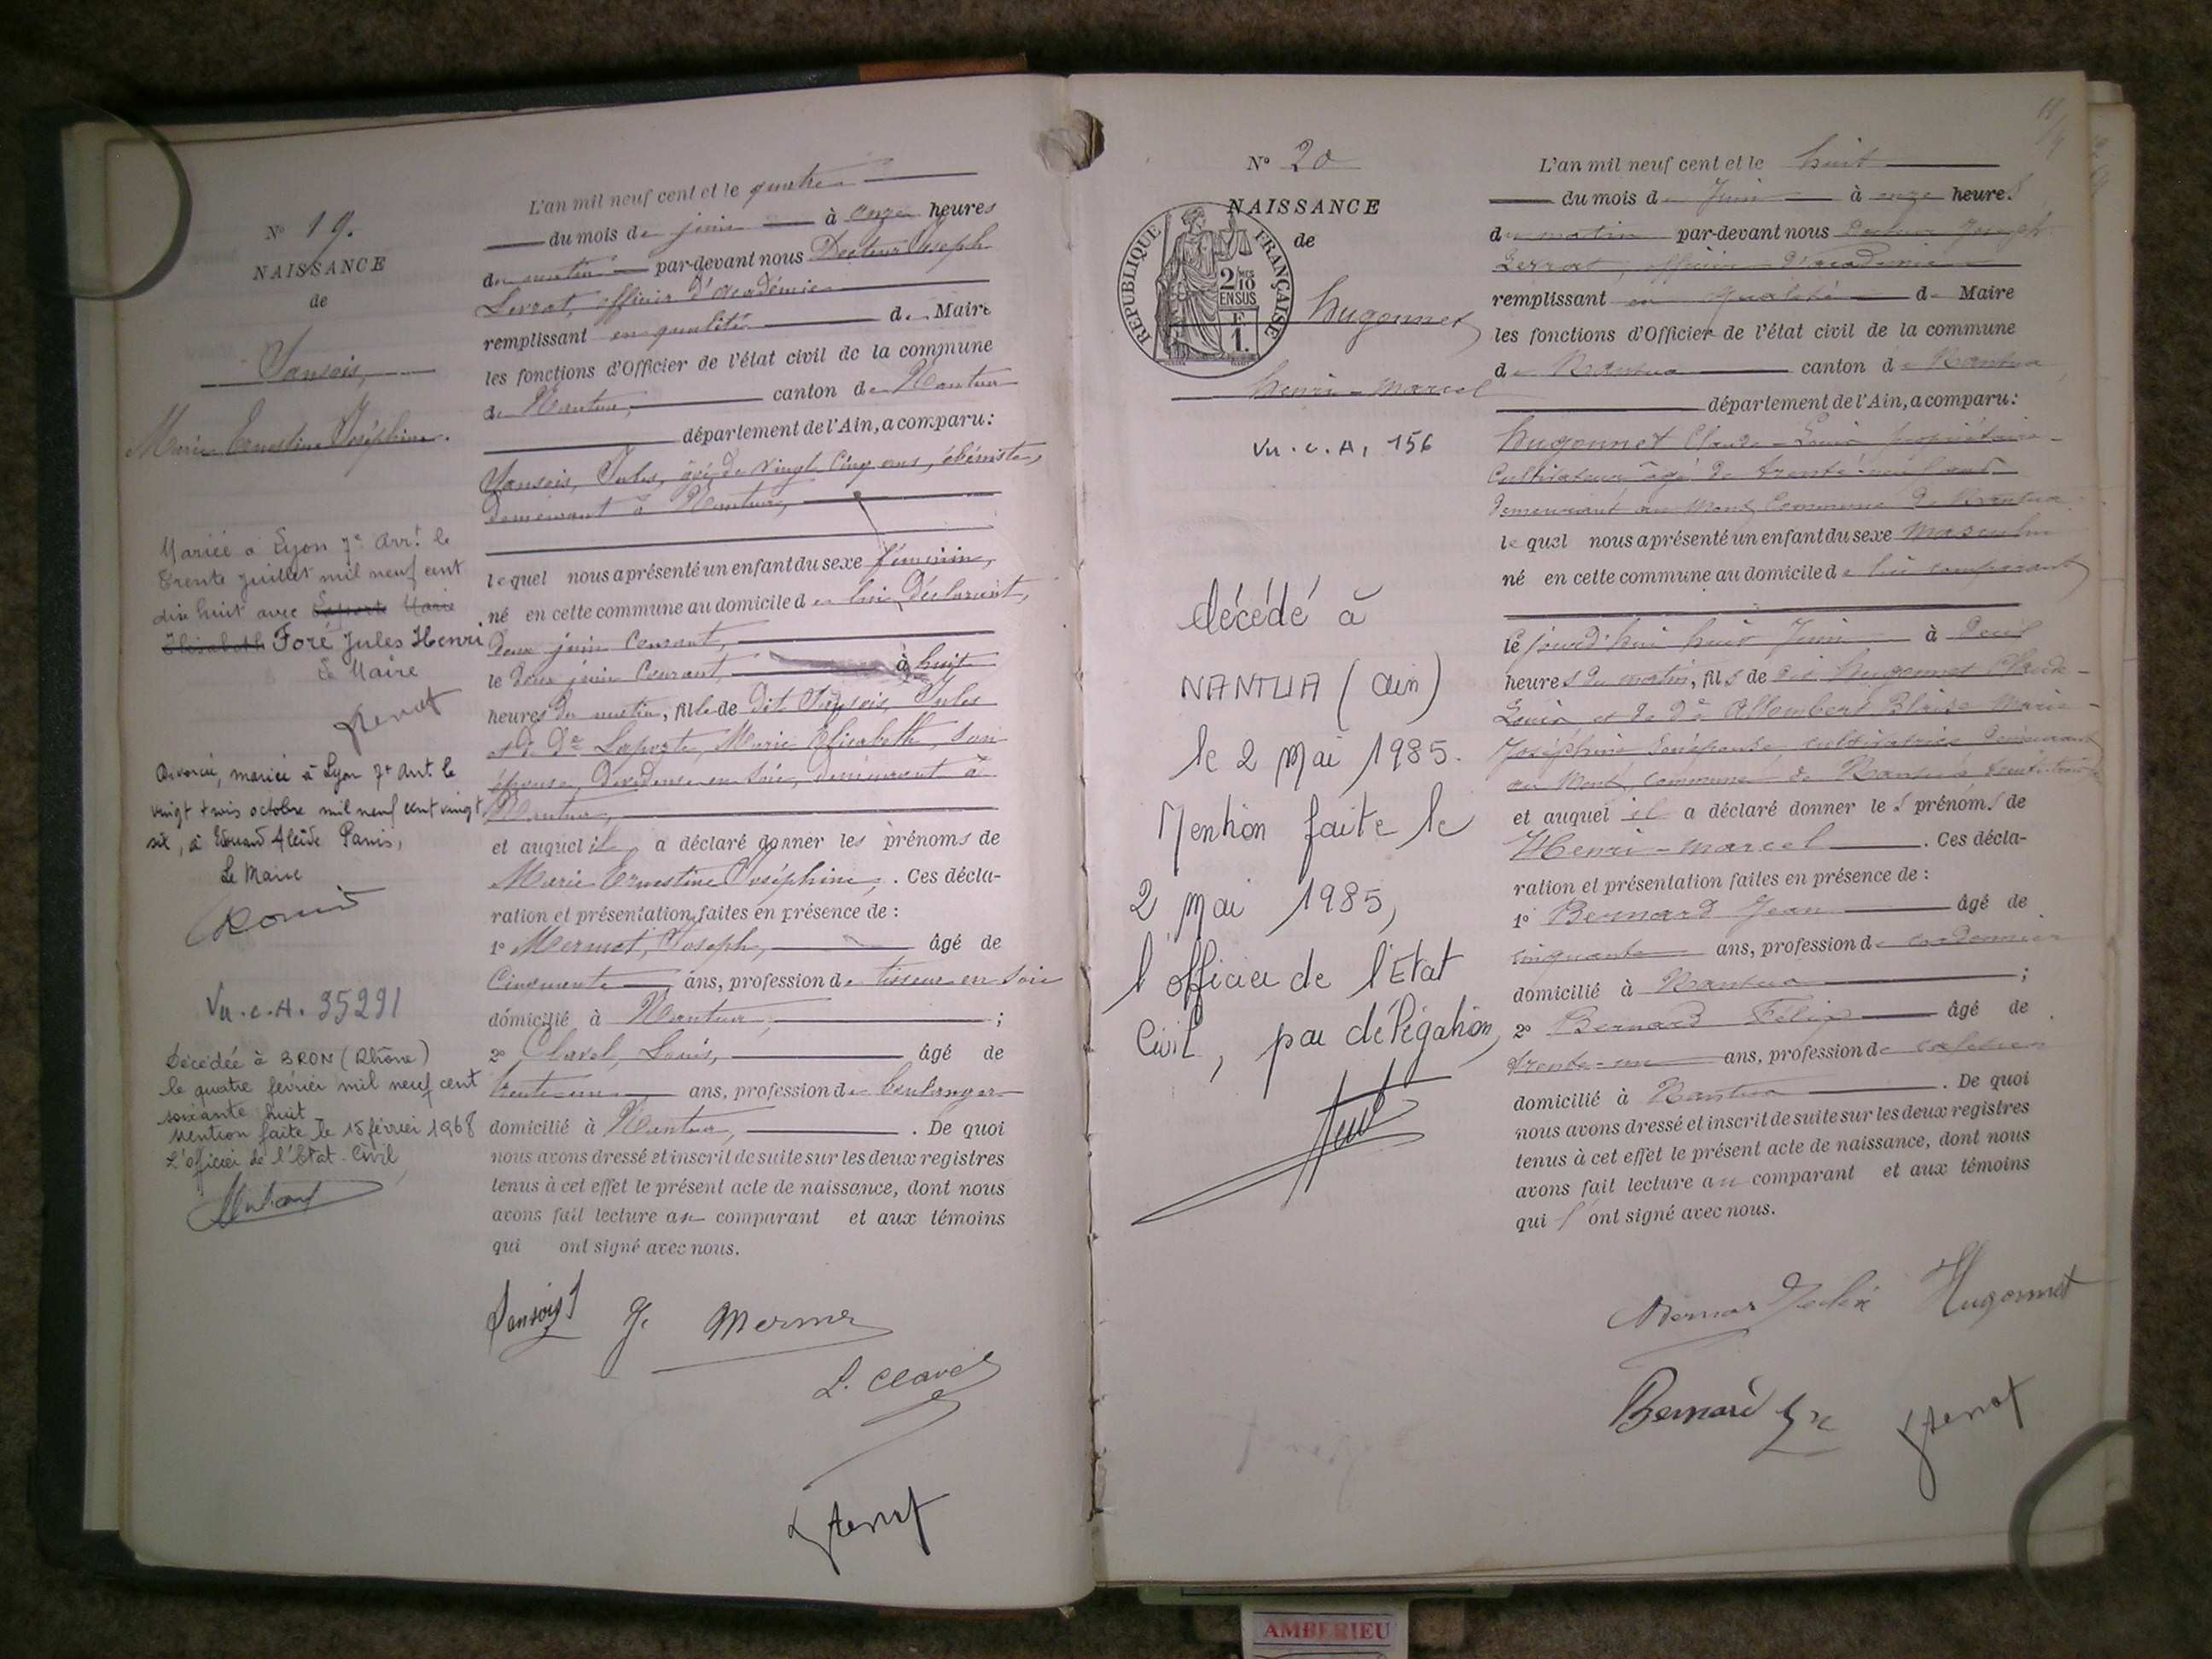 N° 19.
NAISSANCE
de
Sansois,
Marie Ernestine Joséphine.
Mariée à Lyon 7e Arrt le
trente juillet mil neuf cent
dix huit avec Laporte Marie
Elisabeth Foré Jules Henri
Le Maire
Divorcée, mariée à Lyon 7e Arrt le
vingt trois octobre mil neuf cent vingt
six, à Edouard Alcide Panis,
Le Maire
Vu.c.A. 35291
Décédée à BRON (Rhône)
le quatre février mil neuf cent
soixante huit
Mention faite le 15 février 1968
L'officier de l'Etat-Civil
L'an mil neuf cent et le quatre
du mois de juin à onze heures
du matin par-devant nous Docteur Joseph
officier d'académie
remplissant en qualité de Maire
les fonctions d'Officier de l'état civil de la commune
de Nantua, canton de Nantua
département de l'Ain, a comparu:
Sansois, Jules, âgé de vingt cinq ans, ébéniste,
demeurant à Nantua,
lequel nous a présenté un enfant du sexe féminin,
né en cette commune au domicile de lui déclarant,
deux juin courant,
le deux juin courant à huit
heures du matin, fille de dit Sansois, Jules
et de De Laporte, Marie Elisabeth, son
épouse, dévideuse en soie, demeurant à
Nantua,
et auquel il a déclaré donner les prénoms de
Marie Ernestine Joséphine, . Ces décla-
ration et présentation faites en présence de :
1° Mermet, Joseph, âgé de
Cinquante ans, profession de tisseur en soie
domicilié à Nantua, ;
2° Clavel, Louis, âgé de
trente-un ans, profession de boulanger
domicilié à Nantua, . De quoi
nous avons dressé et inscrit de suite sur les deux registres
tenus à cet effet le présent acte de naissance, dont nous
avons fait lecture au comparant et aux témoins
qui ont signé avec nous.
Sansois J
J. Mermet
L. Clavel
N° 20
NAISSANCE
de
RÉPUBLIQUE FRANÇAISE
2/10
EN SUS
F
1.
Hugonnet
Henri-Marcel
Vu.c.A, 156
décédé à
NANTUA (Ain)
le 2 Mai 1985.
Mention faite le
2 Mai 1985,
l'officier de l'Etat
Civil, par délégation,
L'an mil neuf cent et le huit
du mois de Juin à onze heures
du matin par-devant nous Docteur Joseph
officier d'académie
remplissant en qualité de Maire
les fonctions d'Officier de l'état civil de la commune
de Nantua canton de Nantua
département de l'Ain, a comparu:
Hugonnet Claude-Louis propriétaire-
Cultivateur âgé de trente-neuf ans
demeurant au Mont Commune de Nantua
lequel nous a présenté un enfant du sexe masculin
né en cette commune au domicile de lui comparant
le jourd'hui huit Juin à deux
heures du matin, fils de dit Hugonnet Claude-
Louis et de De Allombert Blaise Marie-
Joséphine son épouse cultivatrice demeurant
au Mont, commune de Nantua
et auquel il a déclaré donner les prénoms de
Henri-Marcel . Ces décla-
ration et présentation faites en présence de :
1° Bernard Jean âgé de
cinquante ans, profession de cordonnier
domicilié à Nantua ;
2° Bernard Félix âgé de
trente-un ans, profession de cafetier
domicilié à Nantua . De quoi
nous avons dressé et inscrit de suite sur les deux registres
tenus à cet effet le présent acte de naissance, dont nous
avons fait lecture au comparant et aux témoins
qui l'ont signé avec nous.
Félix Hugonnet
Bernard
AMBERIEU